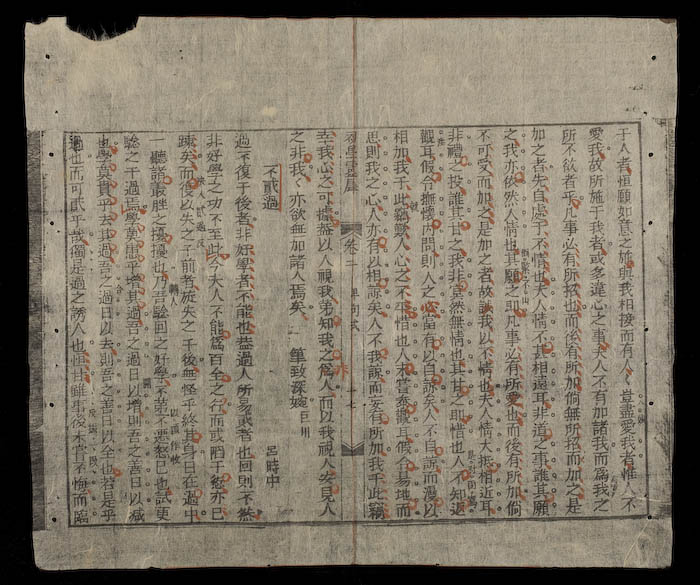 于人者恒願如意之施與我相接而有人人豈盡愛我者惟人不
愛我故所施于我者或多違心之事夫人不有加諸我而為我之
所不欲者乎凡事必有所招也而後有所加倘無所招而加之是
加之者先自處于不情也夫人情不甚相遠耳非道之事誰其願
之我亦依然人情也其願之耶凡事必有所愛也而後有所加倘
不可受而加之是加之者故誤我以不情也夫人情大抵相近耳
非禮之投誰其甘之我非莫然無情也其甘之耶惜也人不知返
觀耳假令撫懷内問則人之心當有以自諒矣人不自諒而漫以
相加我于此竊嘆人心之不平惜也人未嘗泰觀耳假令易地而
思則我之心人亦有以相諒矣人不我諒而妄有所加我于此竊
初學 卷二
幸我心之可據蓋以人視我弟知我之為人而以我視人安見人
之非我我亦欲無加諸人焉矣
筆致深婉
不貳過
呂時中
過不復于後者非好學者不能也蓋過人所易貳者也回則不然
非好學之功不至此今夫人不能為百全之行而或
矣而復以失之于前者旋失之于後無怪乎終其身日在過中
一聽諸叢脞之擾擾也乃吾驗回之好學不第不遷怒已也試更
驗之于過焉學莫患乎增其過吾之過日以增則吾之善日以減
也學莫貴乎去其過吾之過日以去則吾之善日以全也若是乎
過也而可貳乎哉獨是過之誘人也恒甘雖事後未嘗不悔而臨